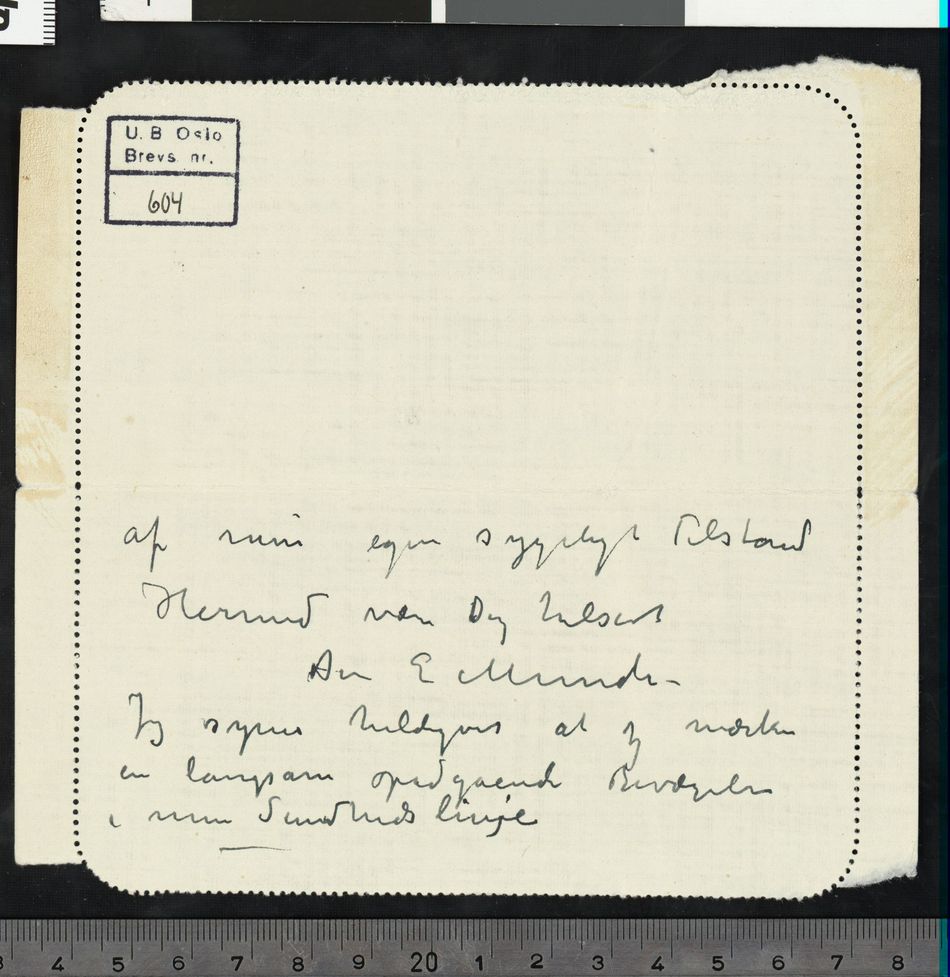 U. B Oslo
Brevs. nr.
604
af min egen sygeligt Tilstand
Hermed vær Dig hilset
Din E Munch –
Jeg synes heldigvis at jeg mærker
en langsam opadgaaende Bevægelse
i min Sundhedslinje
3 4 5 6 7 8 9 20 1 2 3 4 5 6 7 8